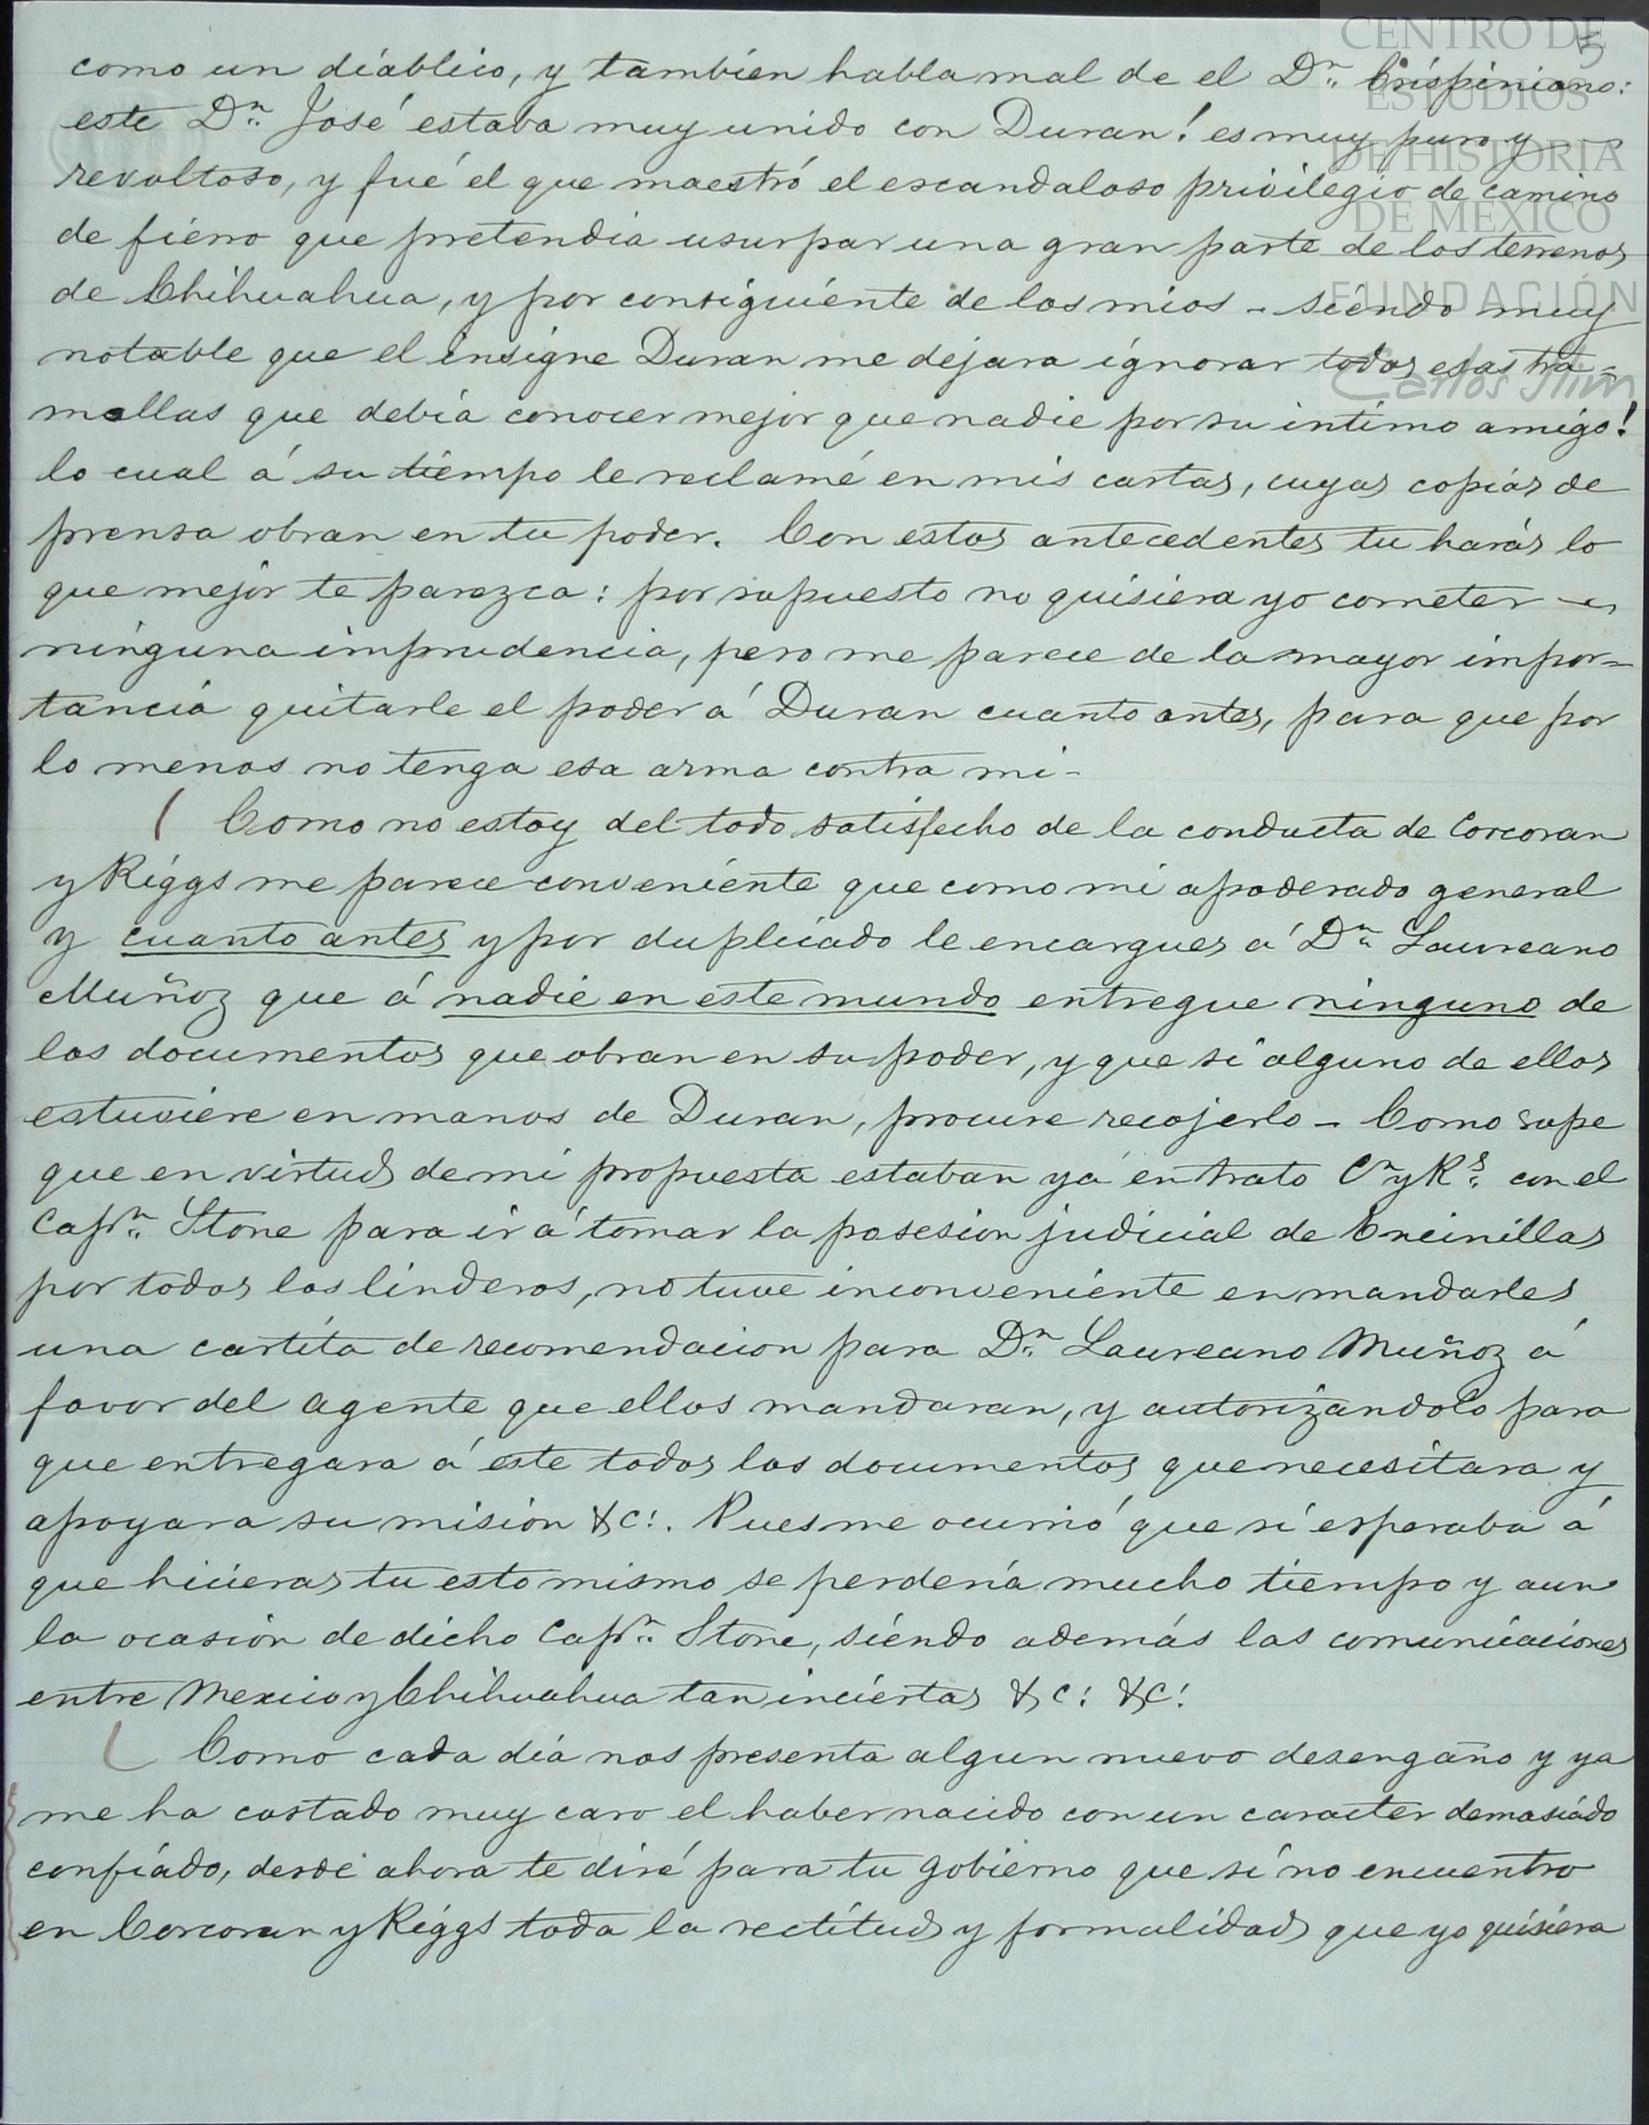 5
CENTRO DE
ESTUDIOS
DE HISTORIA
DE MEXICO
FUNDACIÓN
Carlos Slim
como un diáblico, y tambien habla mal de el Dn. Crispiniano:
este Dn. José estaba muy unido con Duran! es muy puro y
revoltoso, y fué el que maestró el escandaloso privilegio de camino
de fierro que pretendia usurpar una gran parte de los terrenos
de Chihuahua, y por consiguiente de los mios - siendo muy
notable que el insigne Duran me dejara ignorar todas esas tra-
mollas que debía conocer mejor que nadie por su intimo amigo!
lo cual á su tiempo le reclamé en mis cartas, cuyas copias de
prensa obran en tu poder. Con estos antecedentes tu harás lo
que mejor te parezca: por supuesto no quisiera yo cometer
ninguna imprudencia, pero me parece de la mayor impor-
tancia quitarle el poder á Duran cuanto antes, para que por
lo menos no tenga esa arma contra mi -
( Como no estoy del todo satisfecho de la conducta de Corcoran
y Riggs me parece conveniente que como mi apoderado general
y cuanto antes y por duplicado le encargues á Dn. Laureano
Muñoz que á nadie en este mundo entregue ninguno de
los documentos que obran en su poder, y que si alguno de ellos
estuviere en manos de Duran, procure recojerlo - Como supe
que en virtud de mi propuesta estaban ya en trato Cn y Rs. con el
Capn. Stone para ir á tomar la posesion judicial de Encinillas
por todos los linderos, no tuve inconveniente en mandarles
una cartita de recomendacion para Dn. Laureano Muñoz á
favor del agente que ellos mandaran, y autorizandolo para
que entregara á este todos los documentos que necesitara y
apoyara su mision &c!. Pues me ocurrió que si esperaba á
que hicieras tu esto mismo se perdería mucho tiempo y aun
la ocasion de dicho Capn. Stone, siendo además las comunicaciones
entre Mexico y Chihuahua tan inciertas &c! &c!
( Como cada dia nos presenta algun nuevo desengaño y ya
me ha costado muy caro el haber nacido con un caracter demasiado
confiado, desde ahora te diré para tu gobierno que si no encuentro
en Corcoran y Riggs toda la rectitud y formalidad que yo quisiera